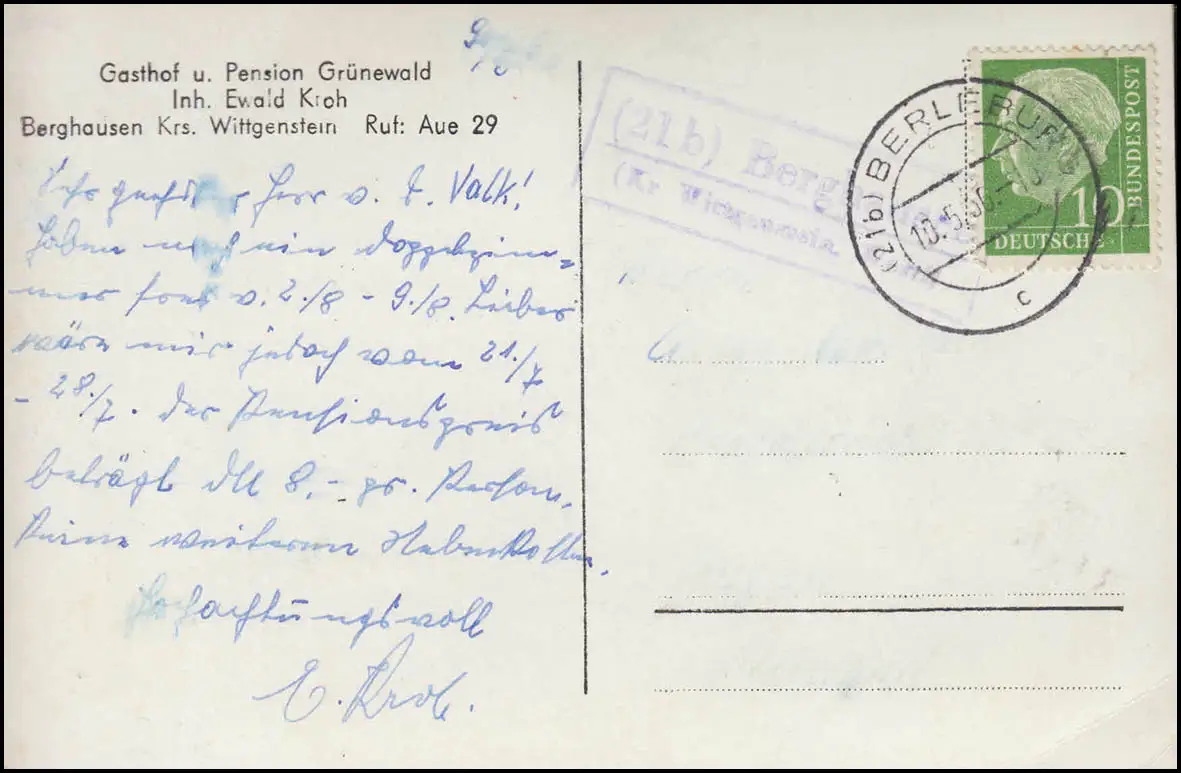 9/5
Gasthof u. Pension Grünewald
Inh. Ewald Kroh
Berghausen Krs. Wittgenstein Ruf: Aue 29
Sehr geehrter Herr v. d. Valk!
Haben noch ein Doppelzim=
mer frei v. 2./8 - 9./8. Lieber
wäre mir jedoch vom 21./7
- 28./7. der Pensionspreis
beträgt DM 8,- pr. Person.
Keine weiteren Nebenkosten.
Hochachtungsvoll
E. Kroh.
(21b) Berghausen
(Kr. Wittgenstein
(21b) BERLEBURG
10.5.56.
c
10
DEUTSCHE
BUNDESPOST